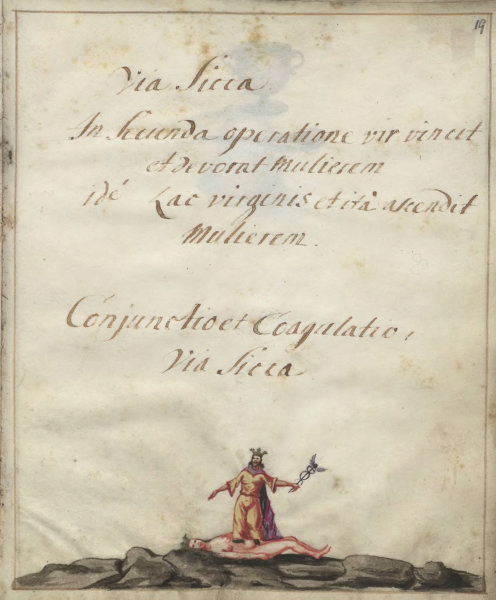 19
Via Sicca
In Secunda operatione vir vincit
et devorat Mulierem
idé Lac virginis et ità ascendit
Mulierem.
Conjunctio et Coagulatio,
Via Sicca